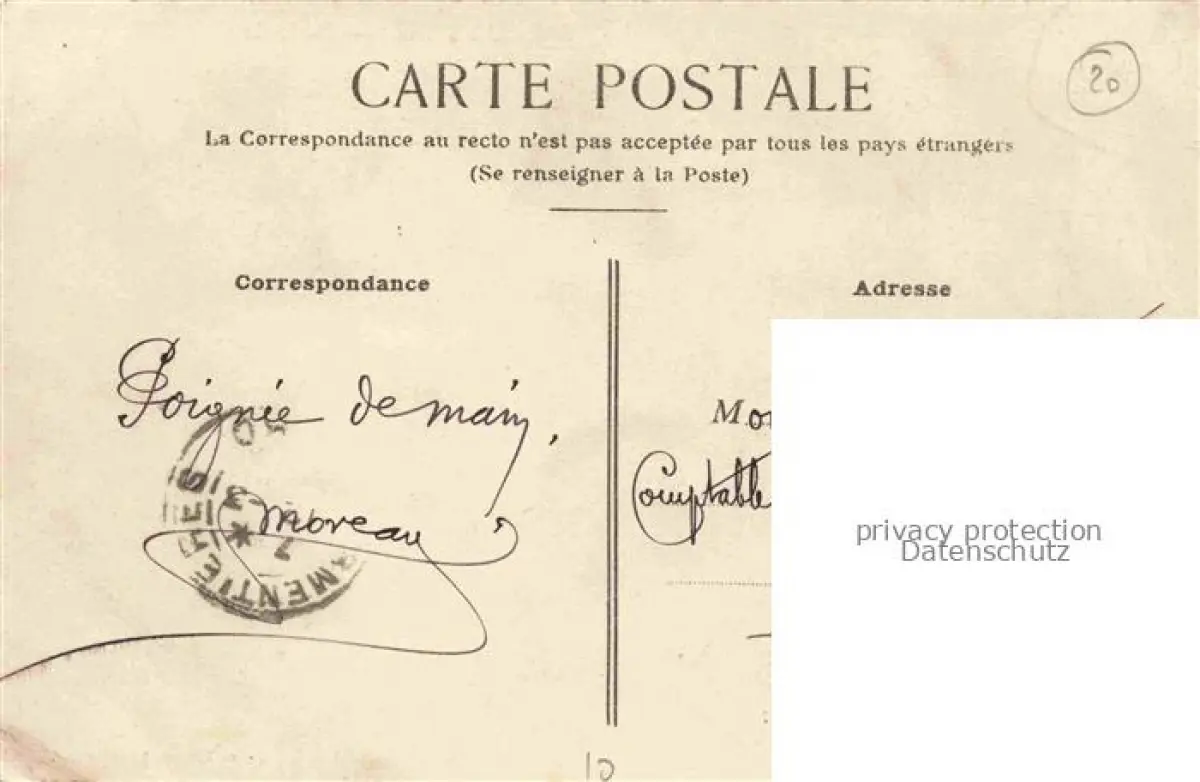 20
CARTE POSTALE
La Correspondance au recto n'est pas acceptée par tous les pays étrangers
(Se renseigner à la Poste)
Correspondance
Poignée de main,
Moreau
MENTIÈRES
Adresse
Mon
Comptable
privacy protection
Datenschutz
10